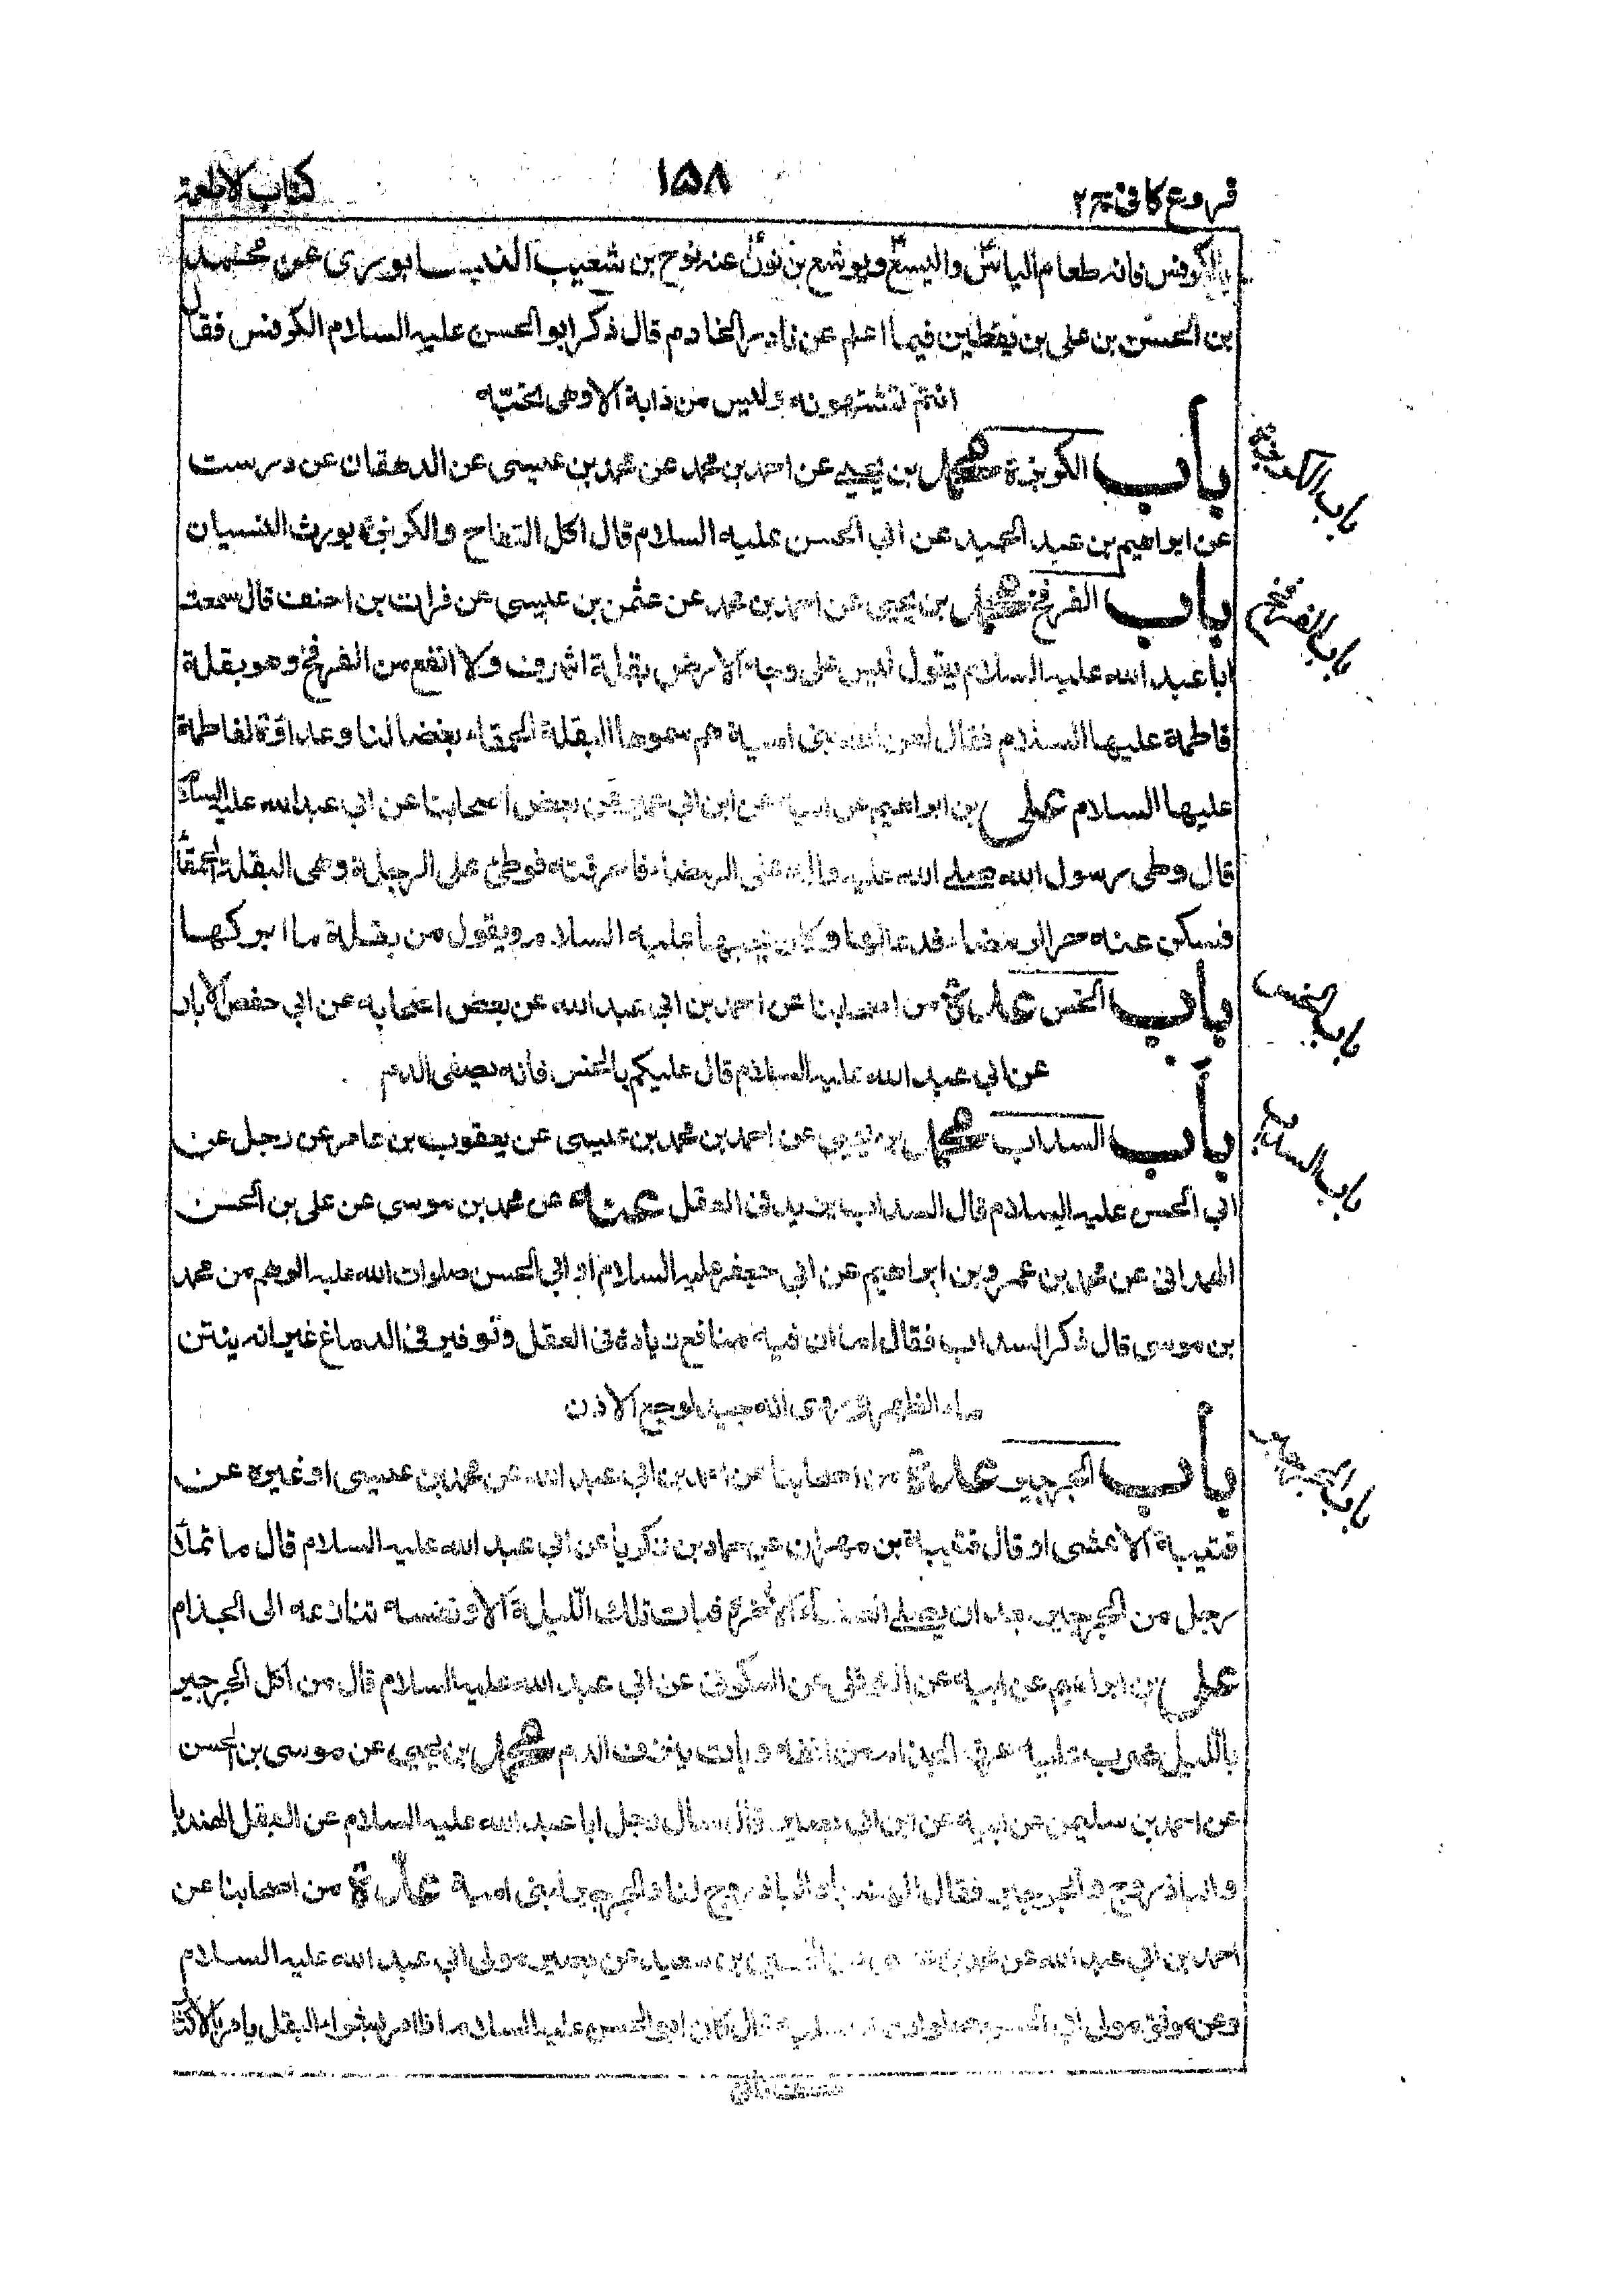 فروع كافى ج٢
١٥٨
كتاب الاطعمة
بالكرفس فانه طعام الياس واليسع ويوشع بن نون عنه نوح بن شعيب النيسابورى عن محمد
بن الحسن بن على بن يقطين فيما اعلم عن نادر الخادم قال ذكر ابو الحسن عليه السلام الكرفس فقال
انتم تشتهونه وليس من دابة الا وهى تحتبه
باب الكزبرة محمد بن يحيى عن احمد بن محمد عن محمد بن عيسى عن الدهقان عن درست
عن ابراهيم بن عبد الحميد عن ابى الحسن عليه السلام قال اكل التفاح والكزبرة يورث النسيان
باب الفرفخ محمد بن يحيى عن احمد بن محمد عن عثمن بن عيسى عن فرات بن احنف قال سمعت
ابا عبد الله عليه السلام يقول ليس على وجه الارض بقلة اشرف ولا انفع من الفرفخ وهو بقلة
فاطمة عليها السلام فقال لعن الله بنى امية هم سموها البقلة الحمقاء بغضا لنا وعداوة لفاطمة
عليها السلام على بن ابراهيم عن ابيه عن ابن ابى عمير عن بعض اصحابنا عن ابى عبد الله عليه السلام
قال وطى رسول الله صلى الله عليه واله على الرمضاء فاحرقته فوطئ على الرجلة وهى البقلة الحمقاء
فسكن عنه حر الرمضاء فدعا لها وكان يحبها عليه السلام ويقول من بقلة ما ابركها
باب الخس عدة من اصحابنا عن احمد بن ابى عبد الله عن بعض اصحابه عن ابى حفص الابار
عن ابى عبد الله عليه السلام قال عليكم بالخس فانه يصفى الدم
باب السداب محمد بن يحيى عن احمد بن محمد بن عيسى عن يعقوب بن عامر عن رجل عن
ابى الحسن عليه السلام قال السداب يزيد فى العقل عنه عن محمد بن موسى عن على بن الحسن
الهمدانى عن محمد بن عمرو بن ابراهيم عن ابى جعفر عليه السلام او ابى الحسن صلوات الله عليه الوهم من محمد
بن موسى قال ذكر السداب فقال اما ان فيه منافع زيادة فى العقل وتوفير فى الدماغ غير انه ينتن
ماء الظهر وروى انه جيد لوجع الاذن
باب الجرجير عدة من اصحابنا عن احمد بن ابى عبد الله عن محمد بن عيسى او غيره عن
قتيبة الاعشى او قال قتيبة بن مهران عن حماد بن زكريا عن ابى عبد الله عليه السلام قال ما تملأ
رجل من الجرجير بعد ان يصلى العشاء الاخرة فبات تلك الليلة الا ونفسه تنازعه الى الجذام
على بن ابراهيم عن ابيه عن النوفلى عن السكونى عن ابى عبد الله عليه السلام قال من اكل الجرجير
بالليل ضرب عليه عرق الجذام من انفه وبات ينزف الدم محمد بن يحيى عن موسى بن الحسن
عن احمد بن سليمن عن ابيه عن ابن ابى بصير قال سال رجل ابا عبد الله عليه السلام عن البقل الهندبا
والباذروج والجرجير فقال الهندبا والباذروج لنا والجرجير لبنى امية عدة من اصحابنا عن
احمد بن ابى عبد الله عن سعيد عن نصير مولى ابى عبد الله عليه السلام
وعن موفق مولى ابى قال كان ابو الحسن عليه السلام اذا امر بشراء البقل يامر بالاكثار
باب الكزبرة
باب الفرفخ
باب الخس
باب السداب
باب الجرجير